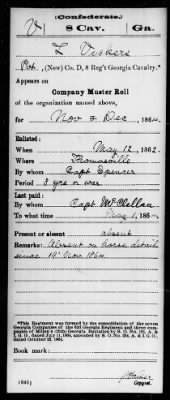 (Confederate.)
V 8 Cav. Ga.
F Vickers
Pvt., (New) Co. D, 8 Reg't Georgia Cavalry.*
Appears on
Company Muster Roll
of the organization named above,
for Nov & Dec, 1864.
Enlisted:
When May 12, 1862.
Where Thomasville
By whom Capt Spencer
Period 3 yrs or war
Last paid:
By whom Capt McClellan
To what time May 1, 1864.
Present or absent absent
Remarks: Absent on horse detail
since 19" Nov 1864
*This Regiment was formed by the consolidation of the seven
Georgia Companies of the 62d Georgia Regiment and three com-
panies of
Georgia Battalion by S. O. No. 161, A. &
I. G. O., dated July 11, 1864, amended by S. O. No. A. & I. G. O.,
dated October 1864.
Book mark:
(641)
Copyist.